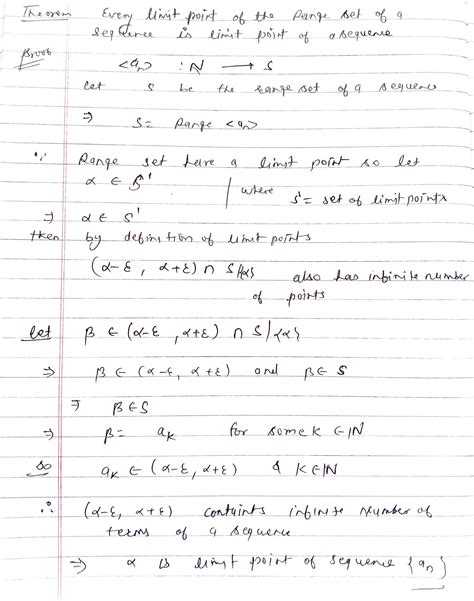 Theorem Every limit point of the Range set of a
sequence is limit point of a sequence
Proof <aₙ> : N ⟶ S
let S be the range set of a sequence
⇒ S = Range <aₙ>
∵ Range set have a limit point so let
α ∈ S' | where S' = set of limit points
⇒ α ∈ S'
then by definition of limit points
(α-ε, α+ε) ∩ S/{α} also has infinite number
of points
let β ∈ (α-ε, α+ε) ∩ S/{α}
⇒ β ∈ (α-ε, α+ε) and β ∈ S
⇒ β ∈ S
⇒ β = aₖ for some k ∈ ℕ
so aₖ ∈ (α-ε, α+ε) & k ∈ ℕ
∴ (α-ε, α+ε) containts infinite number of
terms of a sequence
⇒ α is limit point of sequence {aₙ}